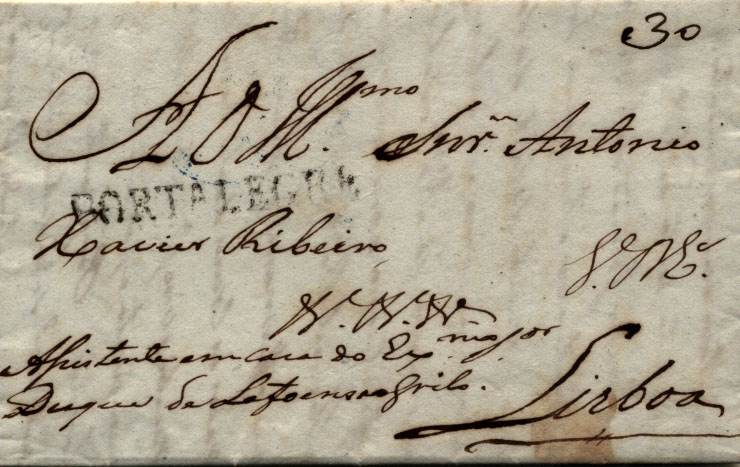 30
Ao Illmo Snr. Antonio
PORTALEGRE
Xavier Ribeiro
G.e M.e
Assistente em casa do Exmo Sor
Duque de Lafoens ao Grilo.
Lisboa